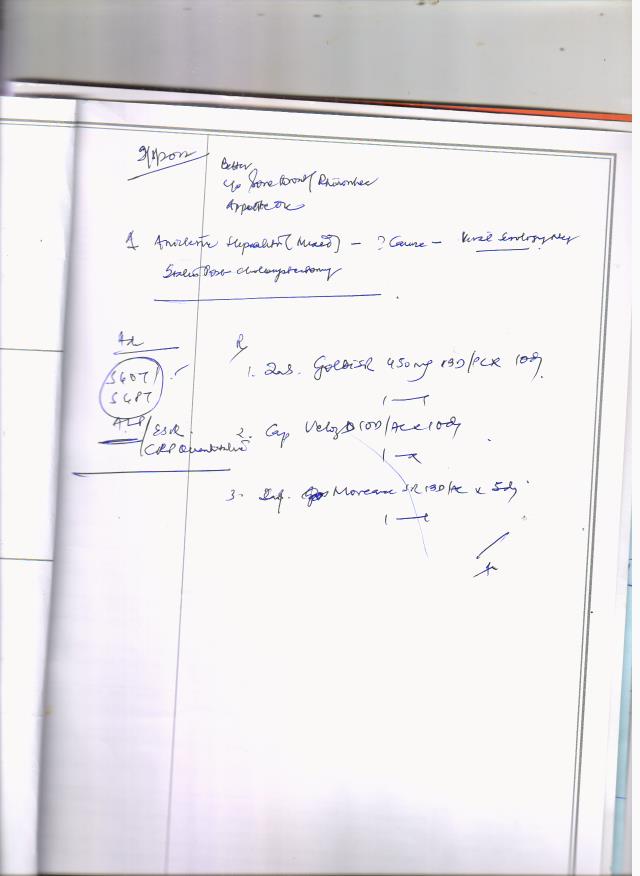 Better
c/o Some Bronc/Rhinorrhea
Appetite OK
Anicteric Hepatitis (Mixed) - ? Cause - Viral Serology Neg
Status Post Cholecystectomy
Ad
SGOT/
SGPT
ALP
/ESR
CRP Quantitative
Rx
1. Tab. Goldi SR 450mg BD/PC x 10d
1 — 1
2. Cap Veloz D OD/AC x 10d
1 — x
3. Morease SR BD/AC x 5d
1 — 1